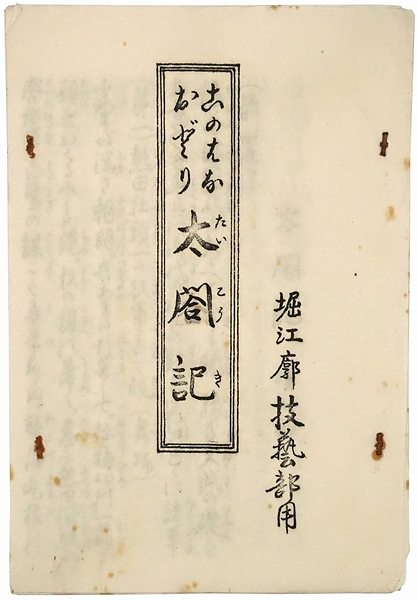 堀江廓技藝部用
このはな
おどり
太閤記
たいこうき